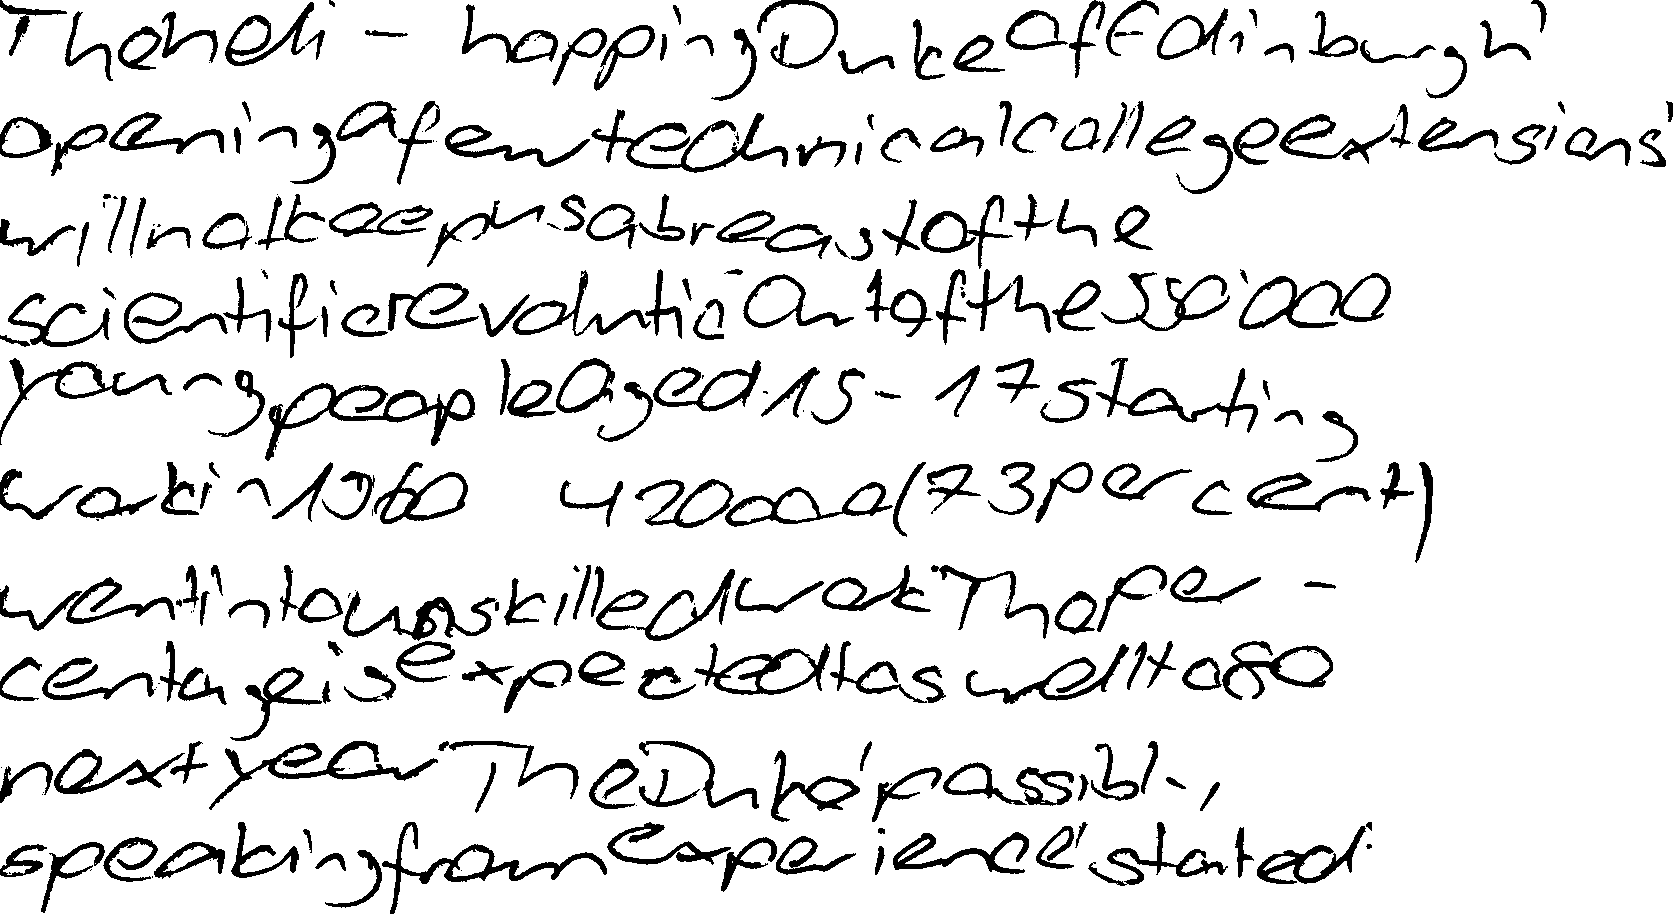 The heli - hopping Duke of Edinburgh
opening a few technical college extensions
will not keep us abreast of the
scientific revolution Out of the 550,000
young people aged 15 - 17 starting
work in 1960 420000 (73 per cent)
went into unskilled work The per -
centage is expected to swell to 80
next year The Duke, possibly,
speaking from experience, started